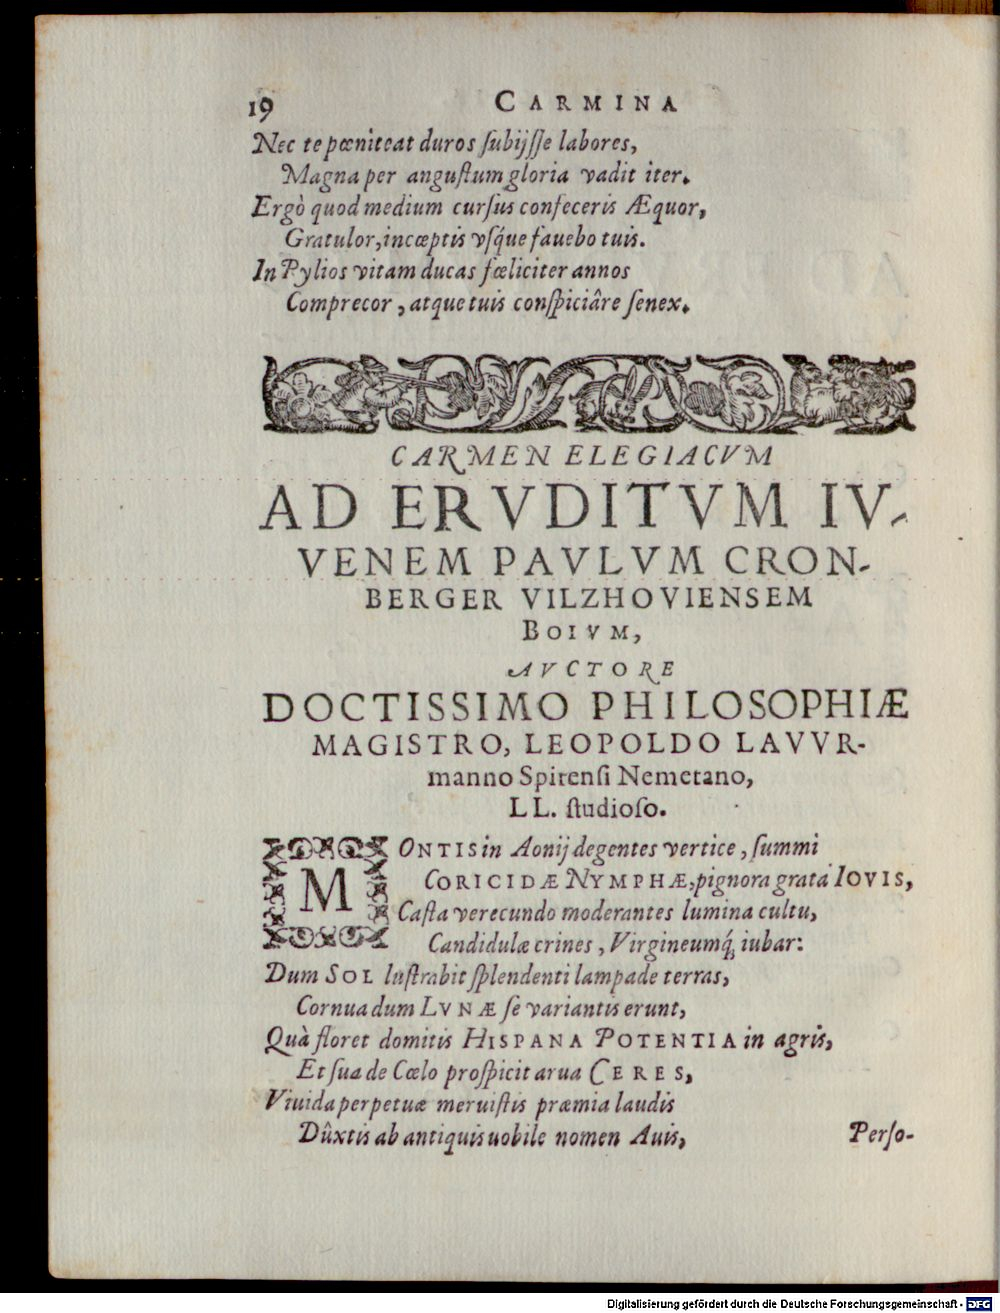 19 CARMINA
Nec te pœniteat duros ſubijſſe labores,
Magna per anguſtum gloria vadit iter.
Ergò quod medium curſus confeceris Æquor,
Gratulor, incœptis vſq́ue fauebo tuis.
In Pylios vitam ducas fœliciter annos
Comprecor, atque tuis conſpiciâre ſenex.
CARMEN ELEGIACVM
AD ERVDITVM IV-
VENEM PAVLVM CRON-
BERGER VILZHOVIENSEM
BOIVM,
AVCTORE
DOCTISSIMO PHILOSOPHIÆ
MAGISTRO, LEOPOLDO LAVVR-
manno Spirenſi Nemetano,
LL. ſtudioſo.
MONTIS in Aonij degentes vertice, ſummi
CORICIDÆ NYMPHÆ, pignora grata IOVIS,
Caſta verecundo moderantes lumina cultu,
Candidulæ crines, Virgineumq́; iubar:
Dum SOL luſtrabit ſplendenti lampade terras,
Cornua dum LVNÆ ſe variantis erunt,
Quà floret domitis HISPANA POTENTIA in agris,
Et ſua de Cœlo proſpicit arua CERES,
Viuida perpetuæ meruiſtis præmia laudis
Dûxtis ab antiquis uobile nomen Auis,
Perſo-
Digitalisierung gefördert durch die Deutsche Forschungsgemeinschaft - DFG